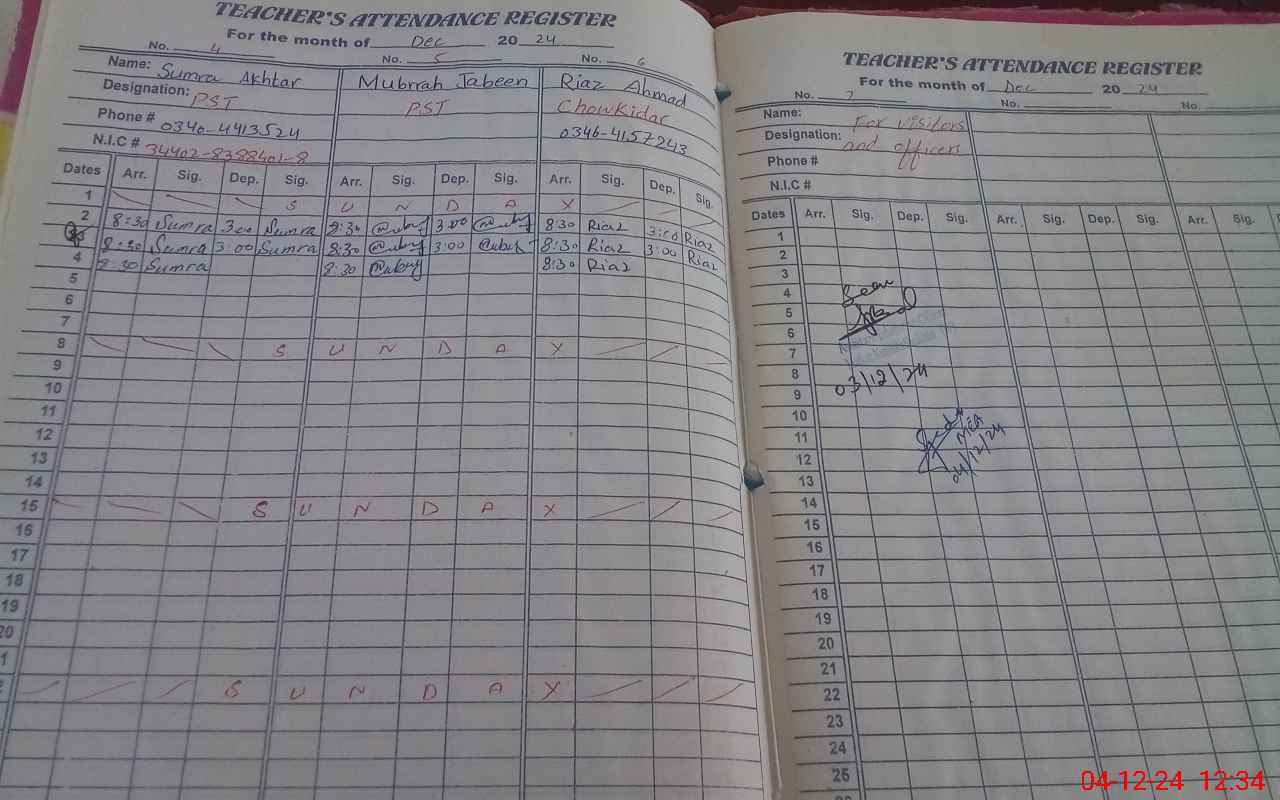 TEACHER'S ATTENDANCE REGISTER
For the month of Dec 2024
No. 4 No. 5 No. 6
Name: Sumra Akhtar Mubrrah Jabeen Riaz Ahmad
Designation: PST PST Chowkidar
Phone # 0340-4413524 0346-4157243
N.I.C # 34402-8388401-8
Dates Arr. Sig. Dep. Sig. Arr. Sig. Dep. Sig. Arr. Sig. Dep. Sig.
1 S U N D A Y
2 8:30 Sumra 3:00 Sumra 8:30 3:00 8:30 Riaz 3:00 Riaz
3 8:30 Sumra 3:00 Sumra 8:30 3:00 8:30 Riaz 3:00 Riaz
4 8:30 Sumra 8:30 8:30 Riaz
5
6
7
8 S U N D A Y
9
10
11
12
13
14
15 S U N D A Y
16
17
18
19
20
1
2 S U N D A Y
TEACHER'S ATTENDANCE REGISTER
For the month of Dec 2024
No. 7 No. No.
Name: For visitors
Designation: and officers
Phone #
N.I.C #
Dates Arr. Sig. Dep. Sig. Arr. Sig. Dep. Sig. Arr. Sig.
1
2
3
4 Seen
5
6
7
8
9 03/12/24
10
11 MEA
12 04/12/24
13
14
15
16
17
18
19
20
21
22
23
24
25
04-12-24 12:34